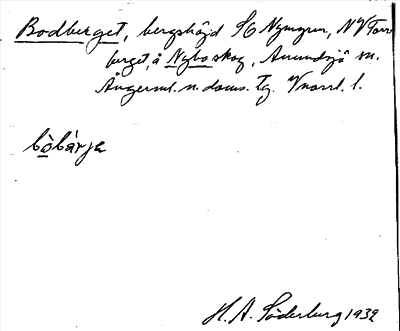 Bodberget, bergshöjd SO Nymyran, NV Torr
berget, å Nybo skog, Anundsjö sn.
Ångerml. n. doms. Tg.
bòbárje
H. A. Söderburg 1932